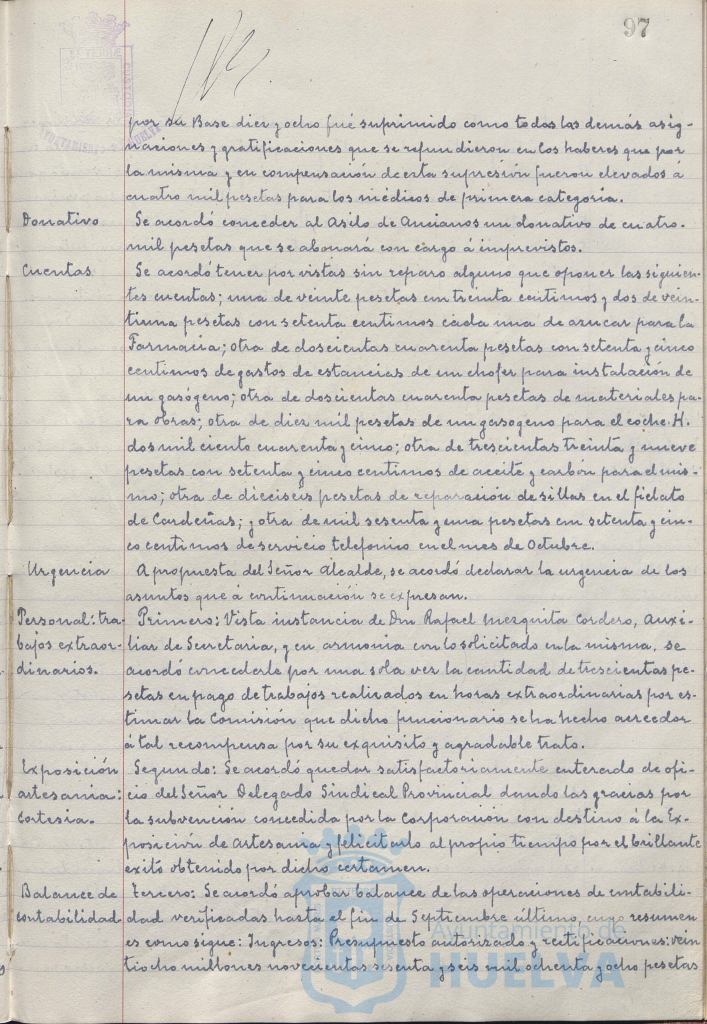 97
por su Base diez y ocho fué suprimido como todas las demás asig-
naciones y gratificaciones que se refundieron en los haberes que por
la misma y en compensación de esta supresión fueron elevados á
cuatro mil pesetas para los médicos de primera categoría.
Donativo Se acordó conceder al Asilo de Ancianos un donativo de cuatro
mil pesetas que se abonará con cargo á imprevistos.
Cuentas Se acordó tener por vistas sin reparo alguno que oponer las siguien-
tes cuentas; una de veinte pesetas con treinta centimos y dos de vein-
tiuna pesetas con setenta centimos cada una de azucar para la
Farmacia; otra de doscientas cuarenta pesetas con setenta y cinco
centimos de gastos de estancias de un chofer para instalación de
un gasógeno; otra de doscientas cuarenta pesetas de materiales pa-
ra obras; otra de diez mil pesetas de un gasogeno para el coche H.
dos mil ciento cuarenta y cinco; otra de trescientas treinta y nueve
pesetas con setenta y cinco centimos de aceite y carbon para el mis-
mo; otra de dieciséis pesetas de reparación de sillas en el fielato
de Cardeñas; y otra de mil sesenta y una pesetas con setenta y cin-
co centimos de servicio telefonico en el mes de Octubre.
Urgencia A propuesta del Señor Alcalde, se acordó declarar la urgencia de los
asuntos que á continuación se expresan.
Personal: tra- Primero: Vista instancia de Don Rafael Mezquita Cordero, Auxi-
bajos extraor- liar de Secretaria, y en armonia con lo solicitado en la misma, se
dinarios. acordó concederle por una sola vez la cantidad de trescientas pe-
setas en pago de trabajos realizados en horas extraordinarias por es-
timar la Comisión que dicho funcionario se ha hecho acreedor
á tal recompensa por su exquisito y agradable trato.
Exposición Segundo: Se acordó quedar satisfactoriamente enterado de ofi-
artesania: cio del Señor Delegado Sindical Provincial dando las gracias por
cortesia. la subvención concedida por la Corporación con destino á la Ex-
posición de Artesania y felicitando al propio tiempo por el brillante
exito obtenido por dicho certamen.
Balance de Tercero: Se acordó aprobar balance de las operaciones de contabili-
contabilidad dad verificadas hasta el fin de Septiembre último, cuyo resumen
es como sigue: Ingresos: Presupuesto autorizado y rectificaciones: vein-
tiocho millones novecientas sesenta y seis mil ochenta y ocho pesetas
Ayuntamiento de
HUELVA